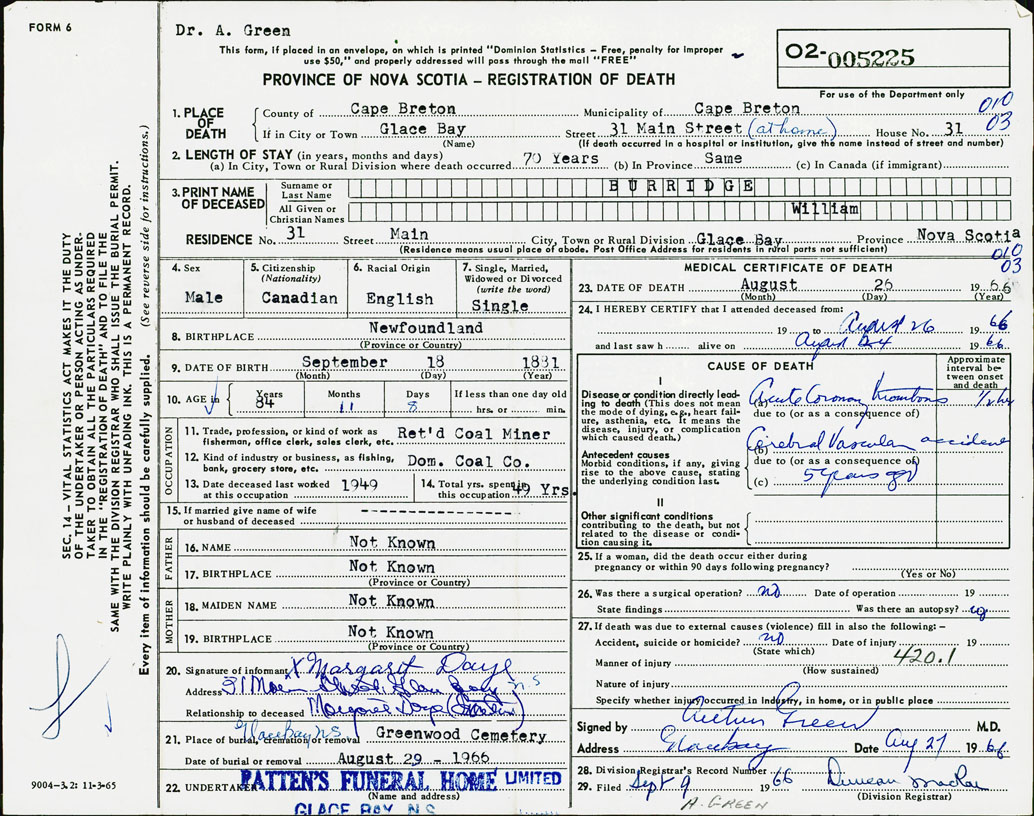 FORM 6
Dr. A. Green
This form, if placed in an envelope, on which is printed "Dominion Statistics – Free, penalty for improper
use $50," and properly addressed will pass through the mail "FREE"
PROVINCE OF NOVA SCOTIA – REGISTRATION OF DEATH
O2-005225
For use of the Department only
010
03
1. PLACE OF DEATH County of Cape Breton Municipality of Cape Breton
If in City or Town Glace Bay Street 31 Main Street (at home) House No. 31
(Name) (If death occurred in a hospital or institution, give the name instead of street and number)
2. LENGTH OF STAY (in years, months and days)
(a) In City, Town or Rural Division where death occurred 70 Years (b) In Province Same (c) In Canada (if immigrant)
3. PRINT NAME OF DECEASED Surname or Last Name BURRIDGE
All Given or Christian Names William
RESIDENCE No. 31 Street Main City, Town or Rural Division Glace Bay Province Nova Scotia
(Residence means usual place of abode. Post Office Address for residents in rural parts not sufficient)
010
03
4. Sex Male
5. Citizenship (Nationality) Canadian
6. Racial Origin English
7. Single, Married, Widowed or Divorced (write the word) Single
8. BIRTHPLACE Newfoundland
(Province or Country)
9. DATE OF BIRTH September 18 1881
(Month) (Day) (Year)
10. AGE in Years 84 Months 11 Days 8 If less than one day old
hrs. or min.
OCCUPATION
11. Trade, profession, or kind of work as fisherman, office clerk, sales clerk, etc. Ret'd Coal Miner
12. Kind of industry or business, as fishing, bank, grocery store, etc. Dom. Coal Co.
13. Date deceased last worked at this occupation 1949
14. Total yrs. spent in this occupation 49 Yrs.
15. If married give name of wife or husband of deceased -----------------
FATHER
16. NAME Not Known
17. BIRTHPLACE Not Known
(Province or Country)
MOTHER
18. MAIDEN NAME Not Known
19. BIRTHPLACE Not Known
(Province or Country)
20. Signature of informant X Margaret Daye
Address 31 Main Street, Glace Bay N S
Relationship to deceased Margaret Daye
21. Place of burial, cremation or removal Glace Bay N.S. Greenwood Cemetery
Date of burial or removal August 29 - 1966
22. UNDERTAKER PATTEN'S FUNERAL HOME LIMITED
(Name and address)
GLACE BAY, N.S.
MEDICAL CERTIFICATE OF DEATH
23. DATE OF DEATH August 26 1966
(Month) (Day) (Year)
24. I HEREBY CERTIFY that I attended deceased from:
19 to August 26 1966
and last saw h alive on August 24 1966
CAUSE OF DEATH
Approximate interval between onset and death
I
Disease or condition directly leading to death (This does not mean the mode of dying, e.g., heart failure, asthenia, etc. It means the disease, injury, or complication which caused death.)
(a) Acute Coronary Thrombosis 1/2 hr
due to (or as a consequence of)
Antecedent causes
Morbid conditions, if any, giving rise to the above cause, stating the underlying condition last.
(b) Cerebral Vascular accident
due to (or as a consequence of)
(c) 5 years ago
II
Other significant conditions contributing to the death, but not related to the disease or condition causing it.
25. If a woman, did the death occur either during
pregnancy or within 90 days following pregnancy?
(Yes or No)
26. Was there a surgical operation? no Date of operation 19
State findings Was there an autopsy? no
27. If death was due to external causes (violence) fill in also the following:–
Accident, suicide or homicide? no Date of injury 19
(State which)
420.1
Manner of injury
(How sustained)
Nature of injury
Specify whether injury occurred in Industry, in home, or in public place
Signed by Arthur Green M.D.
Address Glace Bay Date Aug 27 1966
28. Division Registrar's Record Number
29. Filed Sept 9 1966 Duncan MacRae
(Division Registrar)
A. GREEN
SEC. 14 – VITAL STATISTICS ACT MAKES IT THE DUTY
OF THE UNDERTAKER OR PERSON ACTING AS UNDER-
TAKER TO OBTAIN ALL THE PARTICULARS REQUIRED
IN THE "REGISTRATION OF DEATH" AND TO FILE THE
SAME WITH THE DIVISION REGISTRAR WHO SHALL ISSUE THE BURIAL PERMIT.
WRITE PLAINLY WITH UNFADING INK. THIS IS A PERMANENT RECORD.
Every item of information should be carefully supplied. (See reverse side for instructions.)
9004-3.2: 11-3-65